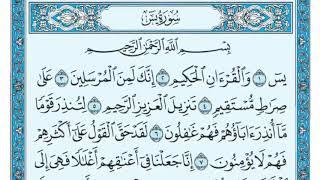 سُورَةُ يسٓ
بِسْمِ اللَّهِ الرَّحْمَٰنِ الرَّحِيمِ
يسٓ ١ وَالْقُرْءَانِ الْحَكِيمِ ٢ إِنَّكَ لَمِنَ الْمُرْسَلِينَ ٣ عَلَىٰ
صِرَاطٍ مُّسْتَقِيمٍ ٤ تَنزِيلَ الْعَزِيزِ الرَّحِيمِ ٥ لِتُنذِرَ قَوْمًا
مَّا أُنذِرَ ءَابَاؤُهُمْ فَهُمْ غَٰفِلُونَ ٦ لَقَدْ حَقَّ الْقَوْلُ عَلَىٰ أَكْثَرِهِمْ
فَهُمْ لَا يُؤْمِنُونَ ٧ إِنَّا جَعَلْنَا فِي أَعْنَٰقِهِمْ أَغْلَٰلًا فَهِيَ إِلَى